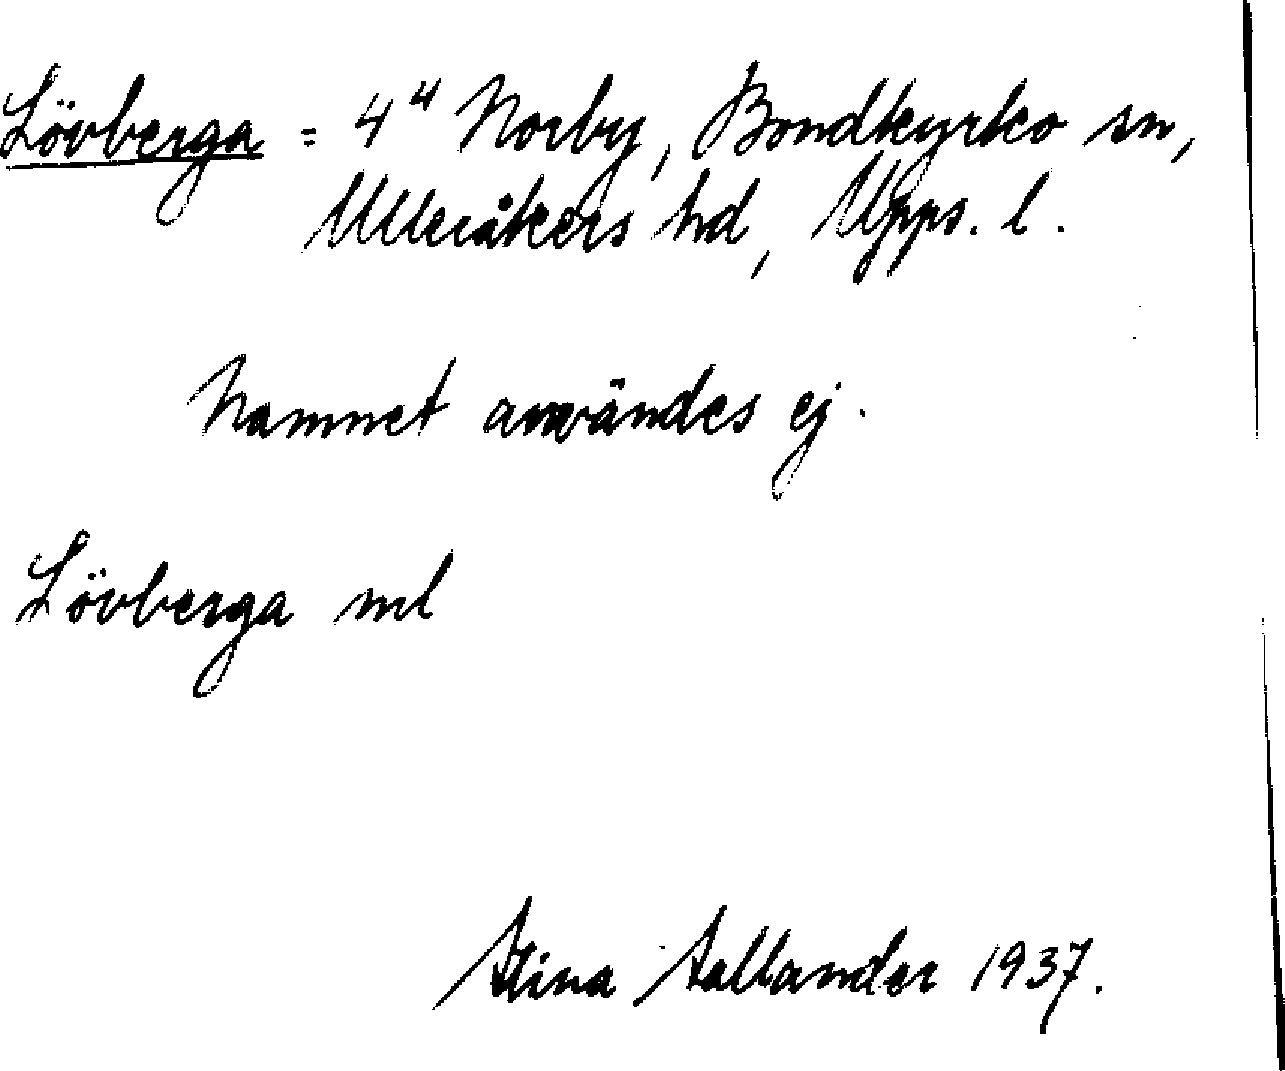 Lövberga = 4⁴ Norby, Bondkyrko sn,
Ulleråkers hd, Upps. l.
Namnet användes ej.
Lövberga ml
Stina Sallander 1937.